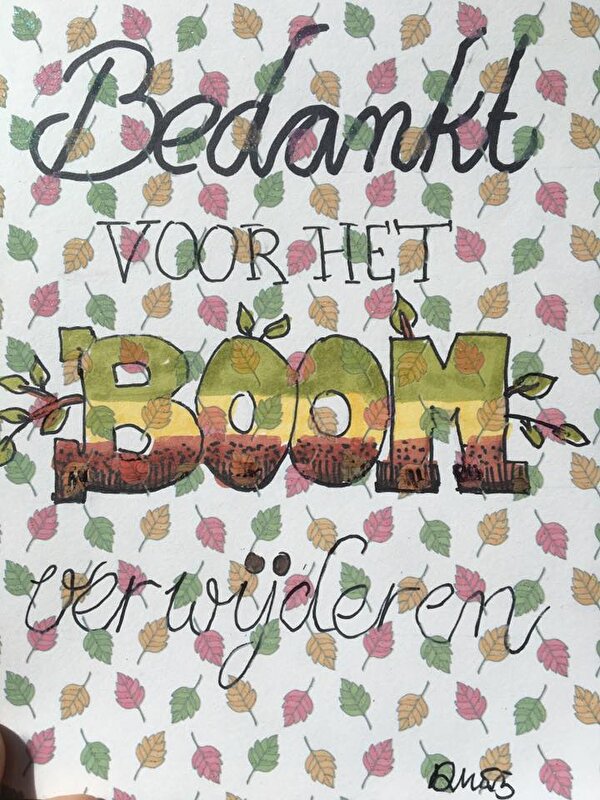 Bedankt
VOOR HET
BOOM
verwijderen